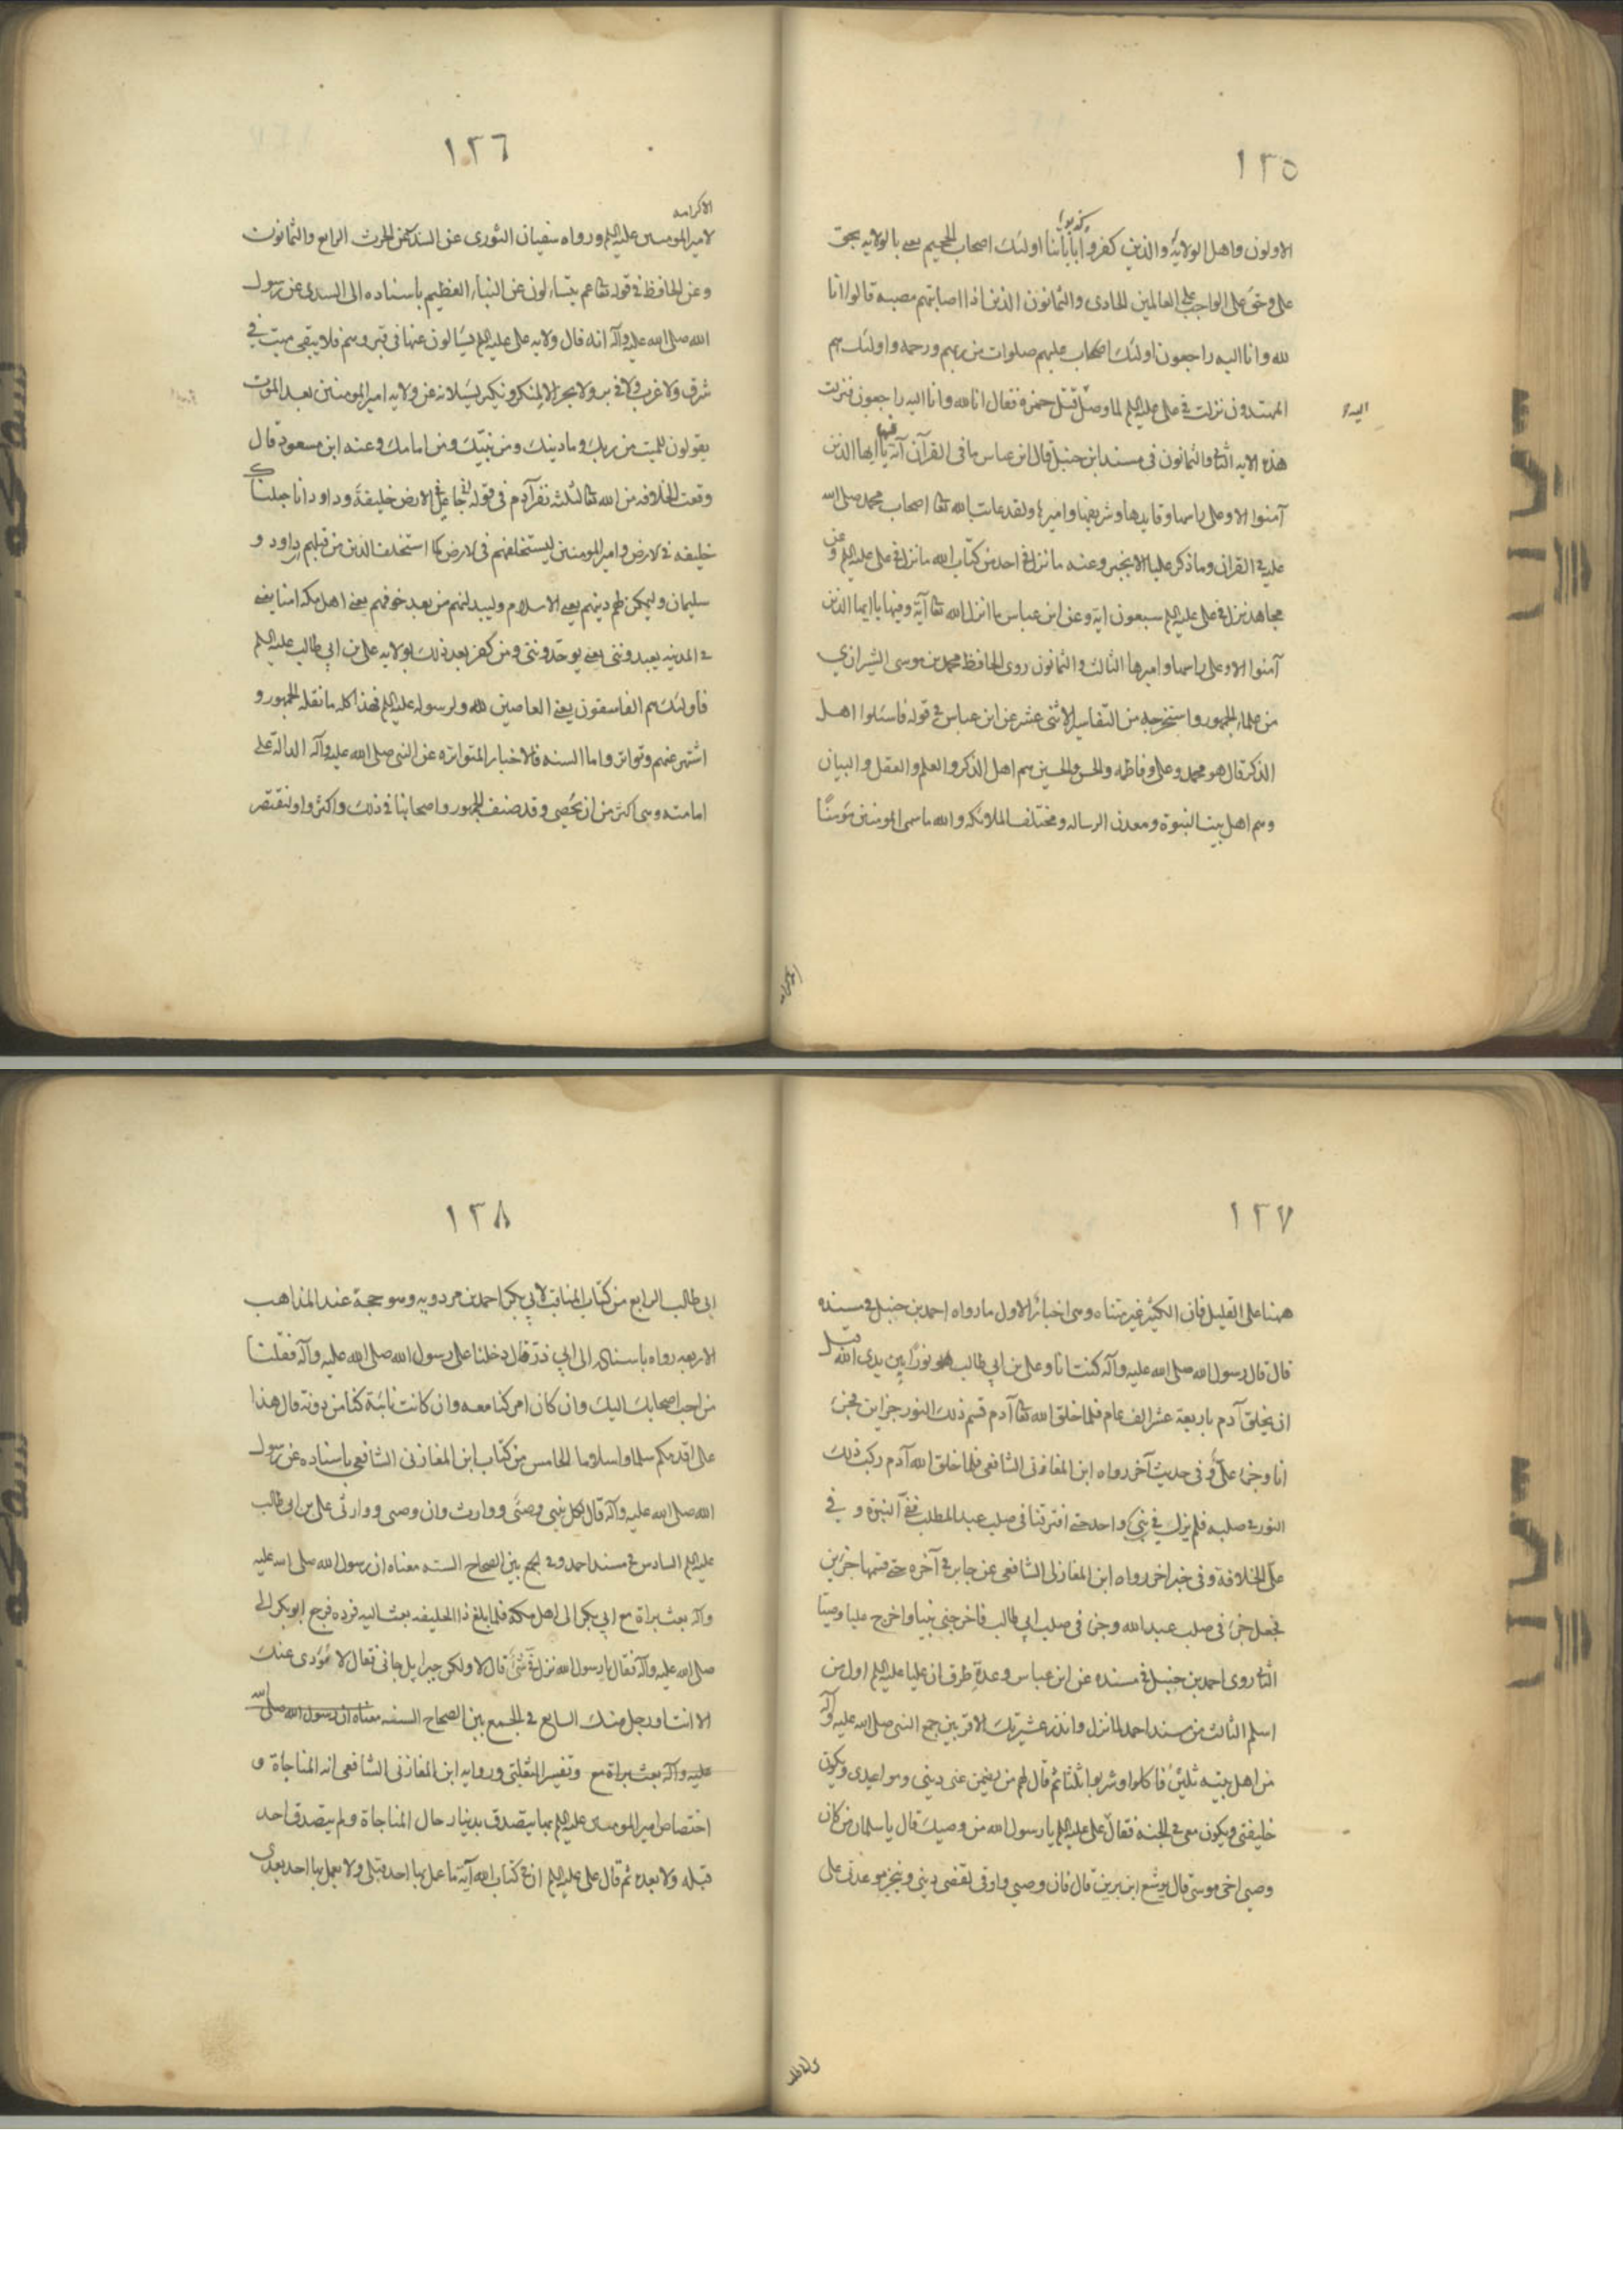 ١٢٥
الاولون واهل الولاية والذين كفروا وكذبوا بآياتنا اولئك اصحاب الجحيم يعني بالولايه بحق
علي وحق علي الواجب علي العالمين الحادي والثمانون الذين اذا اصابتهم مصيبه قالوا انا
لله وانا اليه راجعون اولئك عليهم صلوات من ربهم ورحمه واولئك هم
المهتدون نزلت في علي عليه السلم لما وصل اليه قتل حمزه فقال انا لله وانا اليه راجعون فنزلت
هذه الايه الثاني والثمانون في مسند ابن حنبل قال ابن عباس ما في القرآن آية فيها يا ايها الذين
آمنوا الا وعلي راسها وقايدها وشريفها واميرها ولقد عاتب الله تعا اصحاب محمد صلى الله
عليه في القران وما ذكر عليا الا بخير وعنه ما نزل في احد من كتاب الله ما نزل في علي عليه السلم وعن
مجاهد نزل في علي عليه السلم سبعون اية وعن ابن عباس ما انزل الله تعا آية وفيها يا ايها الذين
آمنوا الا وعلي راسها واميرها الثالث والثمانون روى الحافظ محمد بن موسى الشيرازي
من علماء الجمهور واستخرجه من التفاسير الاثنى عشر عن ابن عباس في قوله فاسئلوا اهل
الذكر قال هو محمد وعلي وفاطمه والحسن والحسين هم اهل الذكر والعلم والعقل والبيان
وهم اهل بيت النبوة ومعدن الرساله ومختلف الملائكه والله ما سمى المومنين مؤمنا
١٢٦
الا كرامه
لامير المومنين عليه السلم ورواه سفيان الثورى عن السدي عن الحرث الرابع والثمانون
وعن الحافظ في قوله تعا عم يتساءلون عن النباء العظيم باسناده الى السدي عن رسول
الله صلى الله عليه وآله انه قال ولايه علي عليه السلم يتسالون عنها في قبورهم فلا يبقى ميت في
شرق ولا غرب ولا في بر ولا بحر الا ومنكر ونكير يسئلانه عن ولايه امير المومنين بعد الموت
يقولون للميت من ربك وما دينك ومن نبيك ومن امامك وعنه ابن مسعود قال
وقعت الخلافه من الله تعا لثلثه نفر آدم في قوله تعا اني جاعل في الارض خليفة وداود انا جعلناك
خليفه في لارض وامير المومنين ليستخلفنهم في لارض كما استخلف الذين من قبلهم داود و
سليمان وليمكنن لهم دينهم يعني الاسلام وليبدلنهم من بعد خوفهم يعني اهل مكه امنا يعني
في المدينه يعبدونني يعني يوحدونني ومن كفر بعد ذلك بولايه علي بن ابي طالب عليه السلم
فاولئك هم الفاسقون يعني العاصين لله ولرسوله عليه السلم فهذا كله ما نقله الجمهور و
اشتهر عنهم وتواتر واما السنه فالاخبار المتواتره عن النبي صلى الله عليه وآله الداله على
امامته وهي اكثر من ان تحصى وقد صنف الجمهور واصحابنا في ذلك واكثروا ولنقتصر
١٢٧
ههنا على القليل فان الكثير غير متناه وهي اخبار الاول ما رواه احمد بن حنبل في مسنده
قال قال رسول الله صلى الله عليه وآله كنت انا وعلي بن ابي طالب نورا بين يدى الله قبل
ان يخلق آدم باربعة عشر الف عام فلما خلق الله تعا آدم قسم ذلك النور جزاين فجزء
انا وجزء علي وفي حديث آخر رواه ابن المغازلى الشافعي فلما خلق الله آدم ركب ذلك
النور في صلبه فلم يزل في شيء واحد حتى افترقنا في صلب عبد المطلب ففي النبوة وفي
علي الخلافة وفي خبر اخر رواه ابن المغازلى الشافعي عن جابر في آخره حتى قسمها جزءين
فجعل جزء في صلب عبد الله وجزء في صلب ابي طالب فاخرجني نبيا واخرج عليا وصيا
الثاني روى احمد بن حنبل في مسنده عن ابن عباس وعدة طرق ان عليا عليه السلم اول من
اسلم الثالث من مسند احمد لما نزل وانذر عشيرتك الاقربين جمع النبي صلى الله عليه وآله
من اهل بيته ثلثين فاكلوا وشربوا ثلثا ثم قال لهم من يضمن عني ديني ومواعيدى ويكون
خليفتي ويكون معي في الجنه فقال علي عليه السلم يا رسول الله من وصيك قال يا سلمان من كان
وصي اخي موسى قال يوشع ابن نون قال فان وصيي وارثي يقضي ديني وينجز موعدتي علي
١٢٨
ابي طالب الرابع من كتاب المناقب لابي بكر احمد بن مردويه وهو حجة عند المذاهب
الاربعه رواه باسناده الى ابي ذر قال دخلنا على رسول الله صلى الله عليه وآله فقلنا
من احب اصحابك اليك وان كان امر كنا معه وان كانت نائبة كنا من دونه قال هذا
علي اقدمكم سلما واسلاما الخامس من كتاب ابن المغازلى الشافعي باسناده عن رسول
الله صلى الله عليه وآله قال لكل نبي وصي ووارث وان وصيي ووارثي علي بن ابي طالب
عليه السلم السادس في مسند احمد وفي الجمع بين الصحاح السته معناه ان رسول الله صلى الله عليه
وآله بعث براة مع ابي بكر الى اهل مكه فلما بلغ ذا الحليفه بعث اليه فرده فرجع ابو بكر الى
صلى الله عليه وآله فقال يا رسول الله نزل في شيء قال لا ولكن جبرايل جاني فقال لا يؤدى عنك
الا انت او رجل منك السابع في الجمع بين الصحاح السته معناه ان رسول الله صلى الله
عليه وآله بعث براة مع وتفسير الثعلبي وروايه ابن المغازلى الشافعي انه المناجاة و
اختصاص امير المومنين عليه السلم بها يتصدق بدينار حال المناجاة ولم يتصدق احد
قبله ولا بعده ثم قال علي عليه السلم ان في كتاب الله آية ما عمل بها احد قبلي ولا يعمل بها احد بعدى